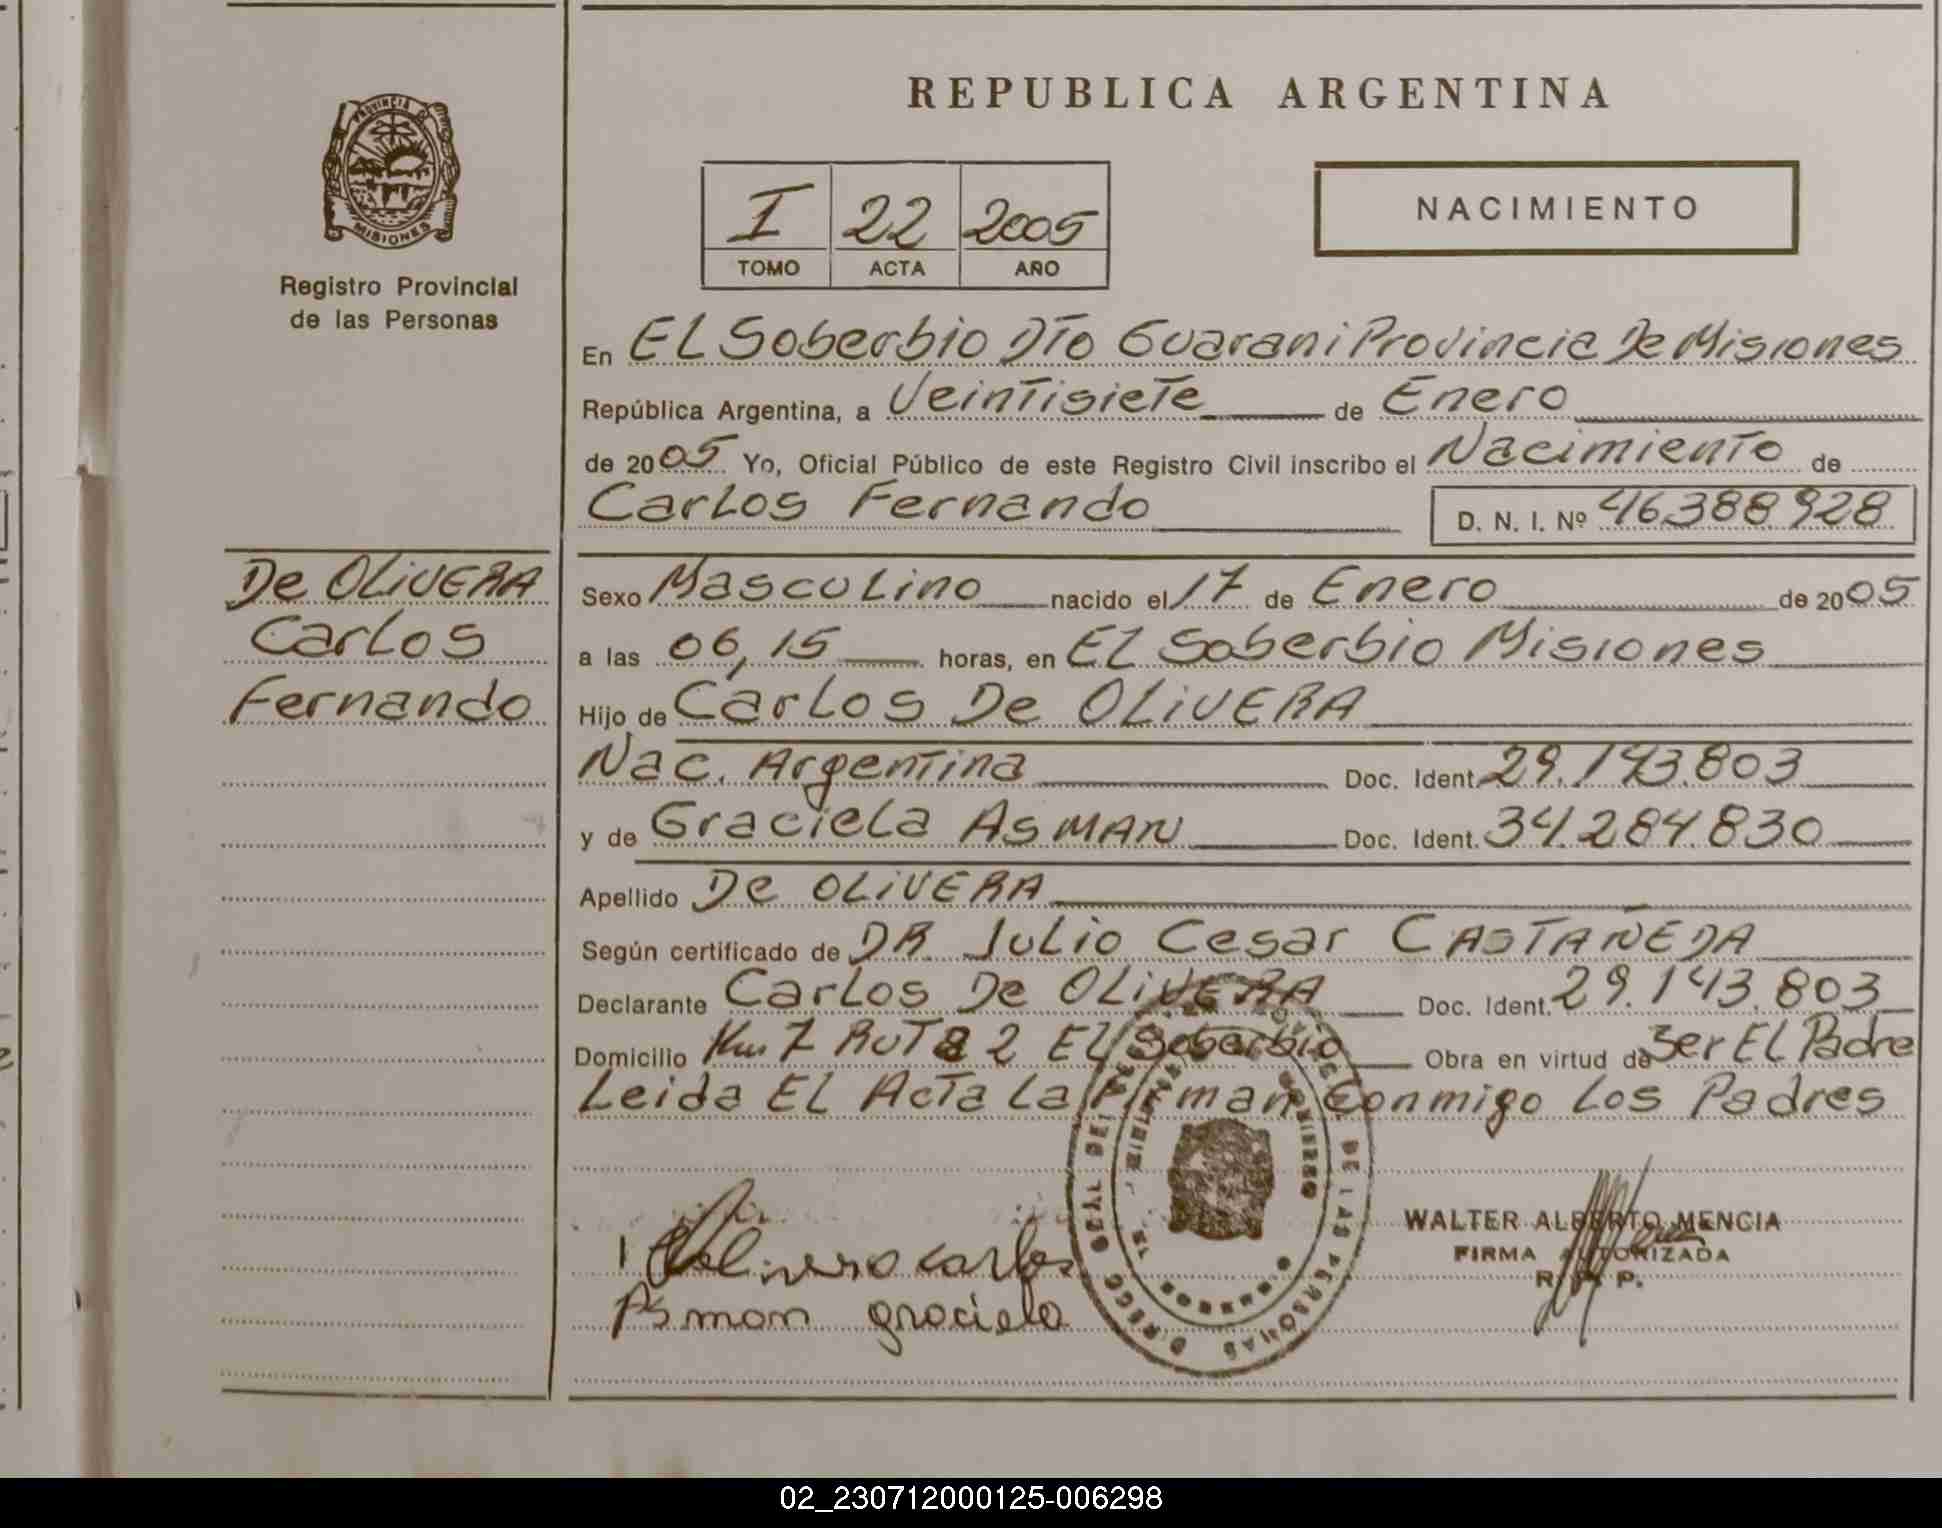 REPUBLICA ARGENTINA
PROVINCIA DE
MISIONES
Registro Provincial
de las Personas
I 22 2005
TOMO ACTA AÑO
NACIMIENTO
En EL Soberbio DTo Guarani Provincia De Misiones
República Argentina, a VeinTisieTe de Enero
de 2005 Yo, Oficial Público de este Registro Civil inscribo el NacimienTo de
Carlos Fernando D. N. I. Nº 46.388.928
De OLiVERA
Carlos
Fernando
Sexo MascuLino nacido el 17 de Enero de 2005
a las 06,15 horas, en EL Soberbio Misiones
Hijo de CarLos De OLiVERA
Nac. ArgenTina Doc. Ident. 29.143.803
y de GracieLa ASMAN Doc. Ident. 34.284.830
Apellido De OLiVERA
Según certificado de DR JuLio Cesar CASTAÑEDA
Declarante CarLos De OLiVERA Doc. Ident. 29.143.803
Domicilio Km 7 RuTa 2 EL Soberbio Obra en virtud de Ser EL Padre
Leida EL AcTa La Firman Conmigo Los Padres
WALTER ALBERTO MENCIA
FIRMA AUTORIZADA
R. P. P.
Carlos
Asman graciela
DE LAS PERSONAS
MISIONES
02_230712000125-006298